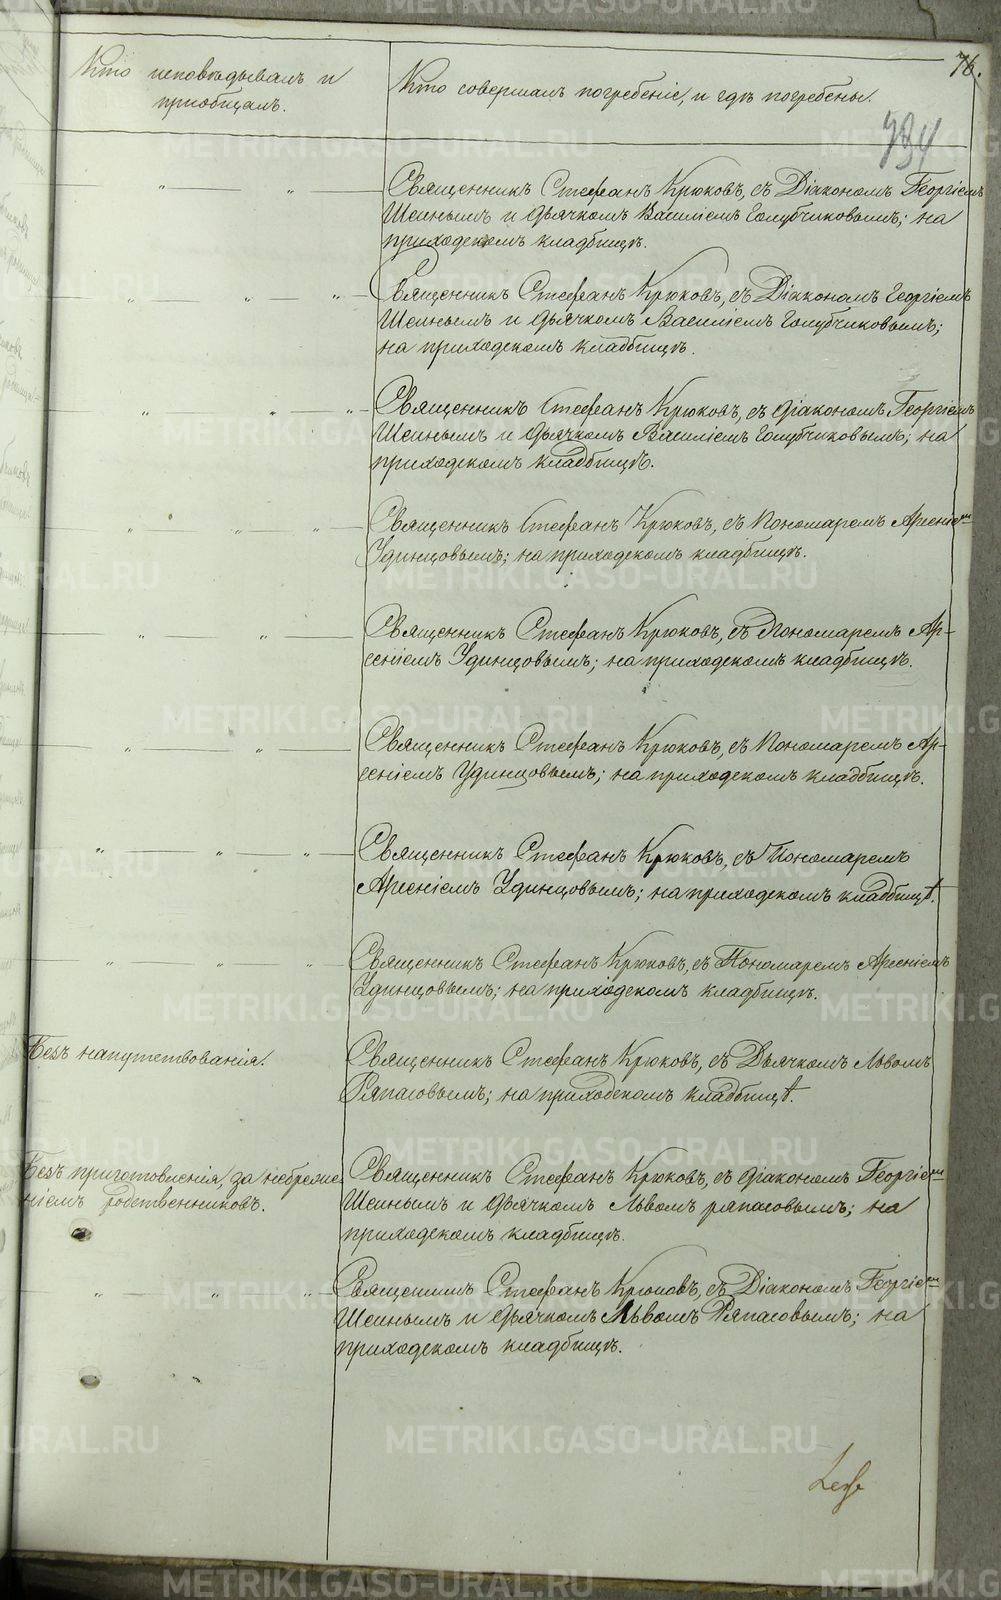 76.
Кто исповѣдывалъ и
пріобщалъ.
Кто совершалъ погребеніе, и гдѣ погребены.
734
Священникъ Стефанъ Крюковъ, съ Діакономъ Георгіемъ
Шеинымъ и дьячкомъ Василіемъ Голубчиковымъ; на
приходскомъ кладбищѣ.
Священникъ Стефанъ Крюковъ, съ Діакономъ Георгіемъ
Шеинымъ и дьячкомъ Василіемъ Голубчиковымъ;
на приходскомъ кладбищѣ.
Священникъ Стефанъ Крюковъ, съ діакономъ Георгіемъ
Шеинымъ и дьячкомъ Василіемъ Голубчиковымъ; на
приходскомъ кладбищѣ.
Священникъ Стефанъ Крюковъ, съ Пономаремъ Арсеніемъ
Удинцовымъ; на приходскомъ кладбищѣ.
Священникъ Стефанъ Крюковъ, съ Пономаремъ Ар-
сеніемъ Удинцовымъ; на приходскомъ кладбищѣ.
Священникъ Стефанъ Крюковъ, съ Пономаремъ Ар-
сеніемъ Удинцовымъ; на приходскомъ кладбищѣ.
Священникъ Стефанъ Крюковъ, съ Пономаремъ
Арсеніемъ Удинцовымъ; на приходскомъ кладбищѣ.
Священникъ Стефанъ Крюковъ, съ Пономаремъ Арсеніемъ
Удинцовымъ; на приходскомъ кладбищѣ.
Безъ напутствованія.
Священникъ Стефанъ Крюковъ, съ Дьячкомъ Львомъ
Ряпасовымъ; на приходскомъ кладбищѣ.
Безъ приготовленія, за небреже
ніемъ родственниковъ.
Священникъ Стефанъ Крюковъ, съ діакономъ Георгіемъ
Шеинымъ и дьячкомъ Львомъ ряпасовымъ; на
приходскомъ кладбищѣ.
Священникъ Стефанъ Крюковъ, съ Діакономъ Георгіемъ
Шеинымъ и дьячкомъ Львомъ Ряпасовымъ; на
приходскомъ кладбищѣ.
METRIKI.GASO-URAL.RU